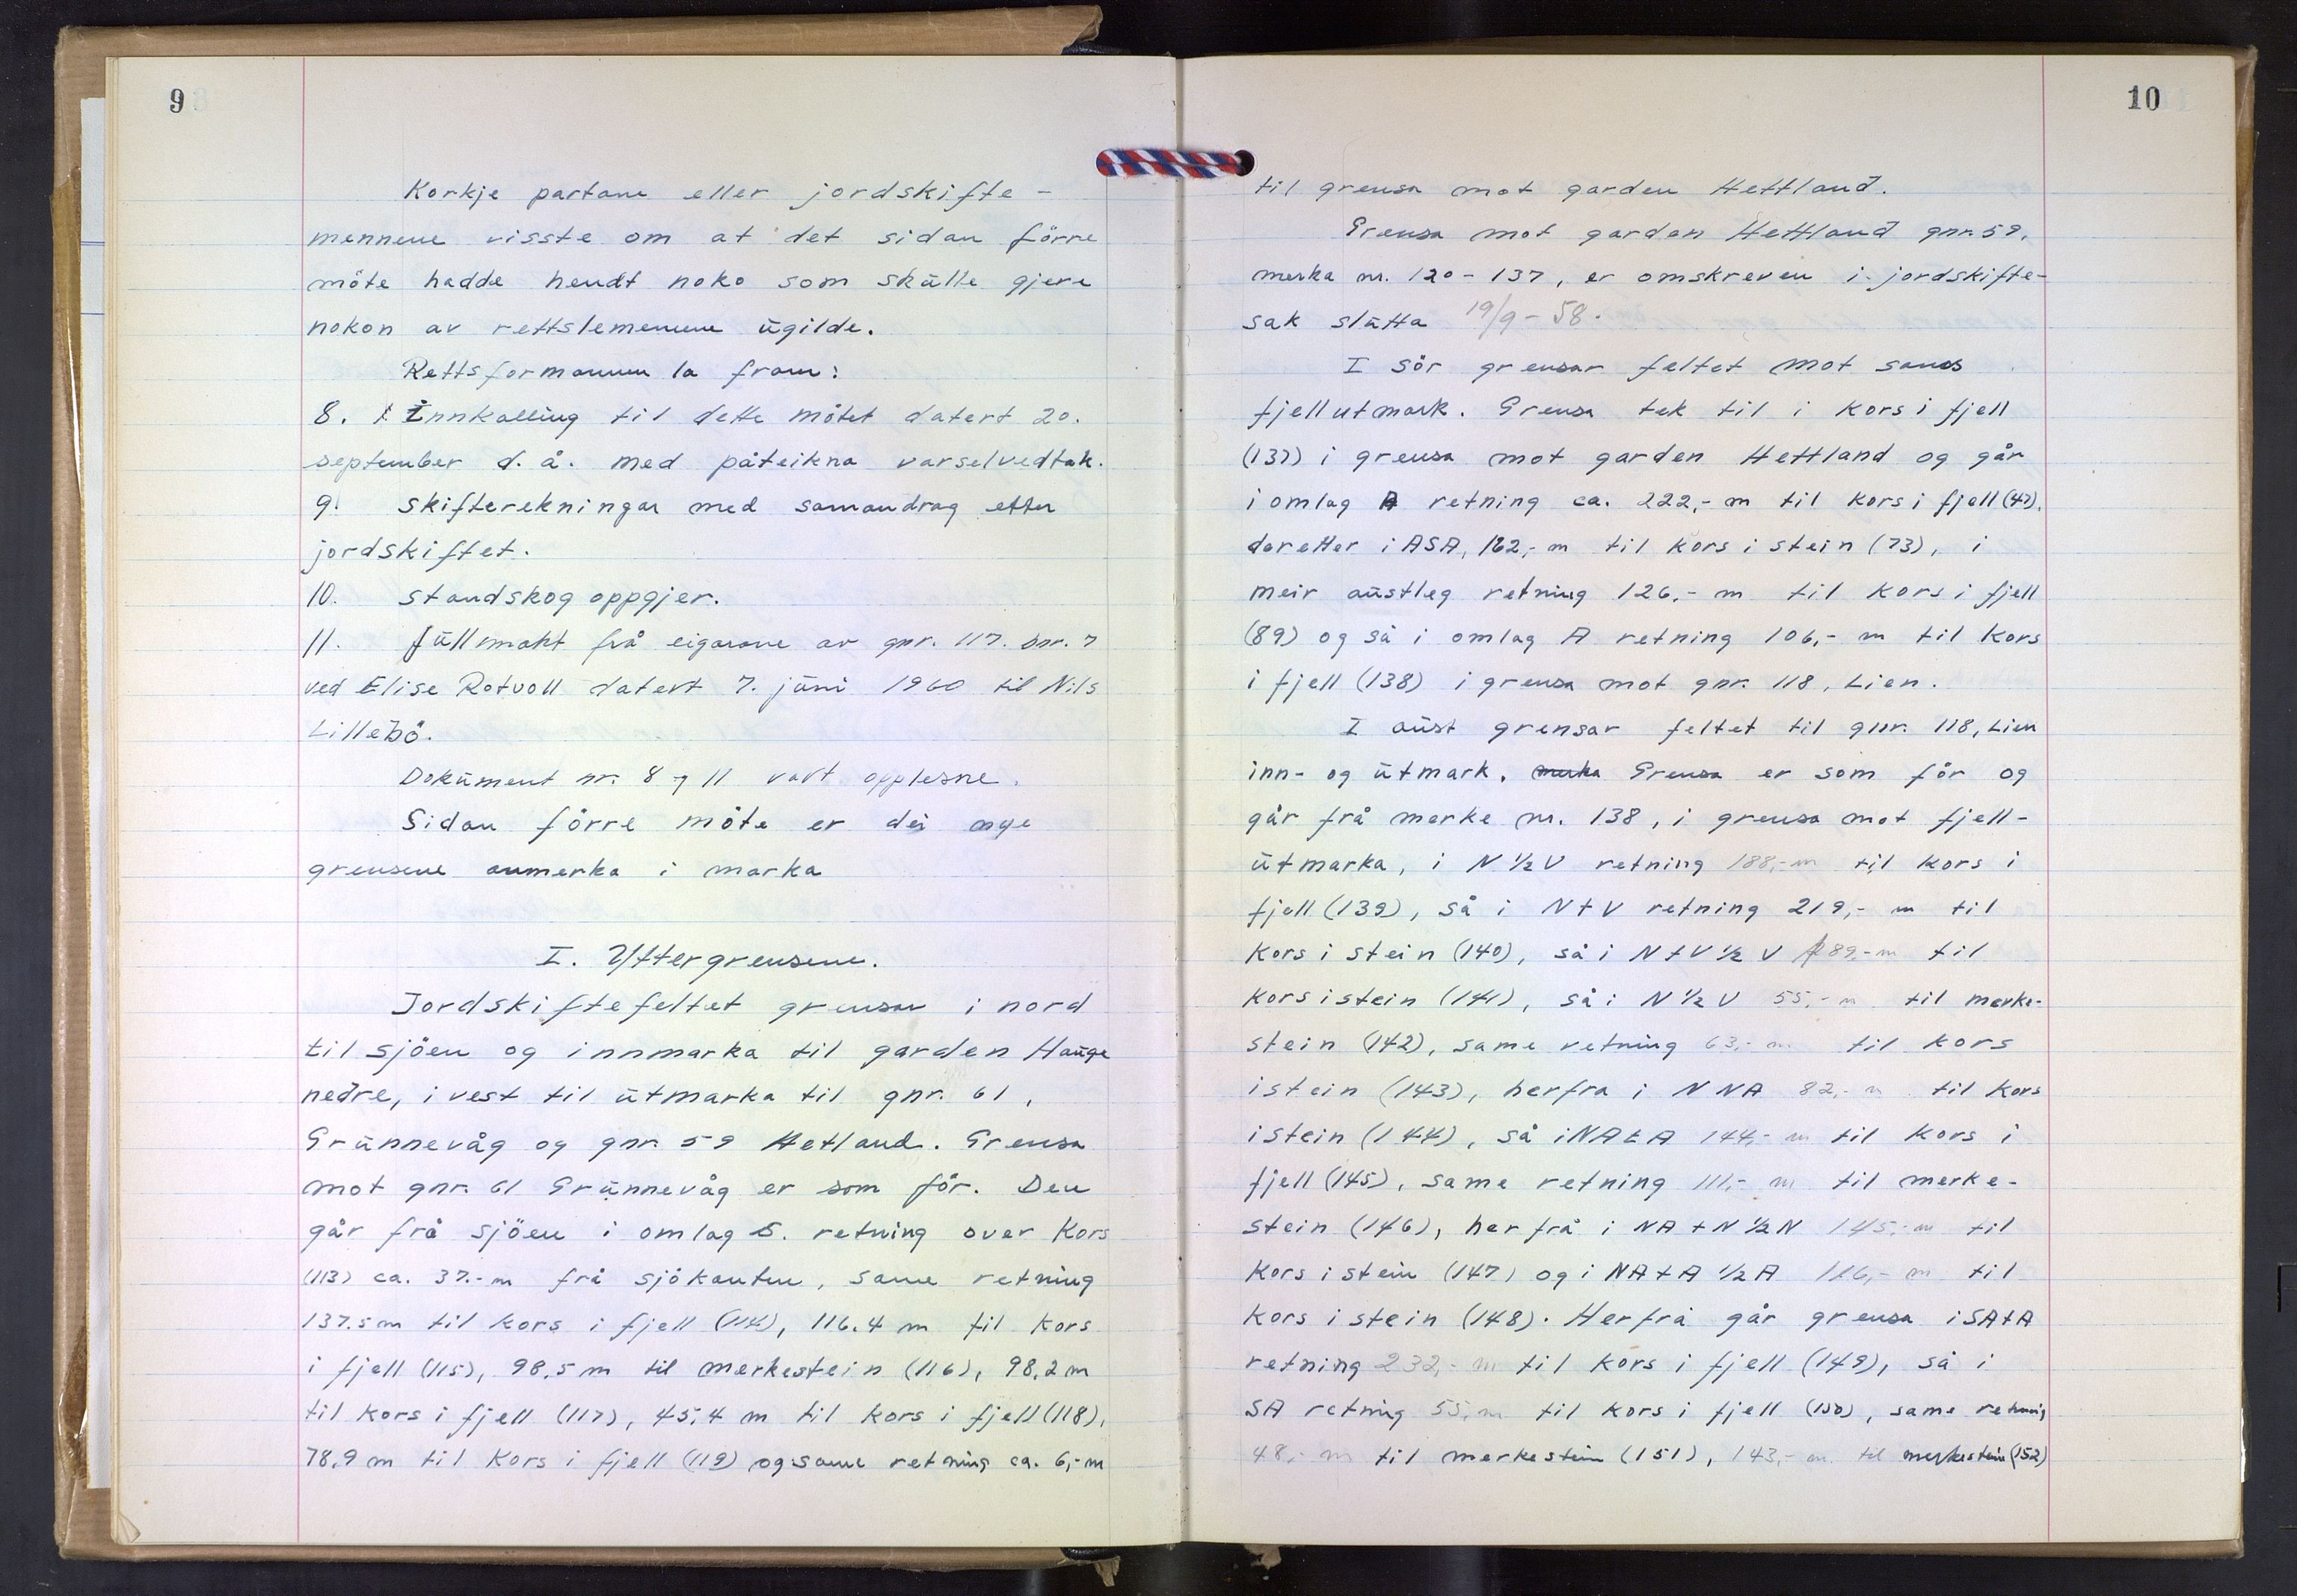 9
Korkje partane eller jordskifte-
mennene visste om at det sidan förre
möte hadde hendt noko som skülle gjere
nokon av rettslemenene ügilde.
Rettsformannen la fram:
8. Innkalling til dette mötet datert 20.
september d.å. med påteikna varselvedtak.
9. Skifterekningar med samandrag etter
jordskiftet.
10. Standskog oppgjer.
11. Füllmakt frå eigarane av gnr. 117. bnr. 7
ved Elise Rotvoll datert 7. jüni 1960 til Nils
Lillebö.
Doküment nr. 8 og 11 vart opplesne.
Sidan förre möte er dei nye
grensene anmerka i marka
I. Yttergrensene.
Jordskiftefeltet grensar i nord
til sjöen og innmarka til garden Haüge
nedre, i vest til ütmarka til gnr. 61,
Grünnevåg og gnr. 59 Hetland. Grensa
mot gnr. 61 Grünnevåg er som för. Den
går frå sjöen i omlag S. retning over Kors
(113) ca. 37.-m frå sjökanten, same retning
137.5m til kors i fjell (114), 116.4 m til kors
i fjell (115), 98,5 m til merkestein (116), 98,2 m
til kors i fjell (117), 45,4 m til kors i fjell (118),
78,9 m til kors i fjell (119) og same retning ca. 6,-m
10
til grensa mot garden Hettland.
Grensa mot garden Hettland gnr. 59,
merka nr. 120-137, er omskreven i jordskifte-
sak slütta 19/9-58.
I sör grensar feltet mot sams
fjellutmark. Grensa tek til i kors i fjell
(137) i grensa mot garden Hettland og går
i omlag A retning ca. 222,-m til kors i fjell (47),
daretter i ASA, 162,-m til kors i stein (73), i
meir aüstleg retning 126,-m til kors i fjell
(89) og så i omlag A retning 106,-m til kors
i fjell (138) i grensa mot gnr. 118, Lien.
I aüst grensar feltet til gnr. 118, Lien
inn- og ütmark. merka Grensa er som för og
går frå merke nr. 138, i grensa mot fjell-
ütmarka, i N ½ V retning 188,-m til kors i
fjell (139), så i NtV retning 219,-m til
kors i stein (140), så i NtV ½ V 89,-m til
kors i stein (141), så i N ½ V 55,-m til merke-
stein (142), same retning 63,-m til kors
i stein (143), herfra i NNA 82,-m til kors
i stein (144), så i NAtA 144,-m til kors i
fjell (145), same retning 111,-m til merke-
stein (146), herfrå i NAtN ½ N 145,-m til
kors i stein (147) og i NAtA ½ A 116,-m til
kors i stein (148). Herfrå går grensa i SAtA
retning 232,-m til kors i fjell (149), så i
SA retning 55,-m til kors i fjell (150), same retning
48,-m til merkestein (151), 143,-m til merkestein (152)